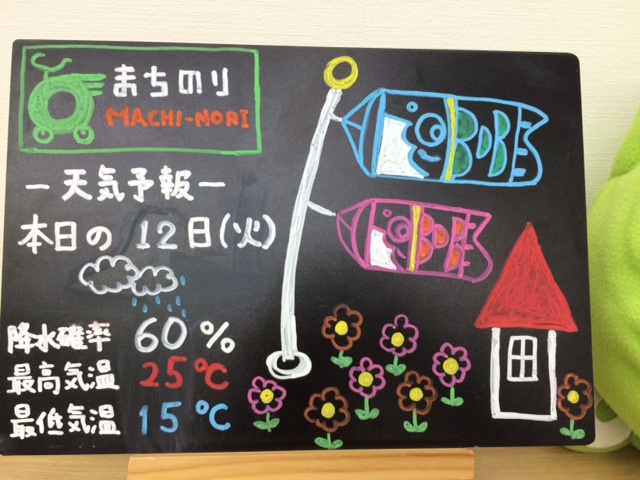 まちのり
MACHI-NORI
－天気予報－
本日の 12日(火)
降水確率 60%
最高気温 25℃
最低気温 15℃